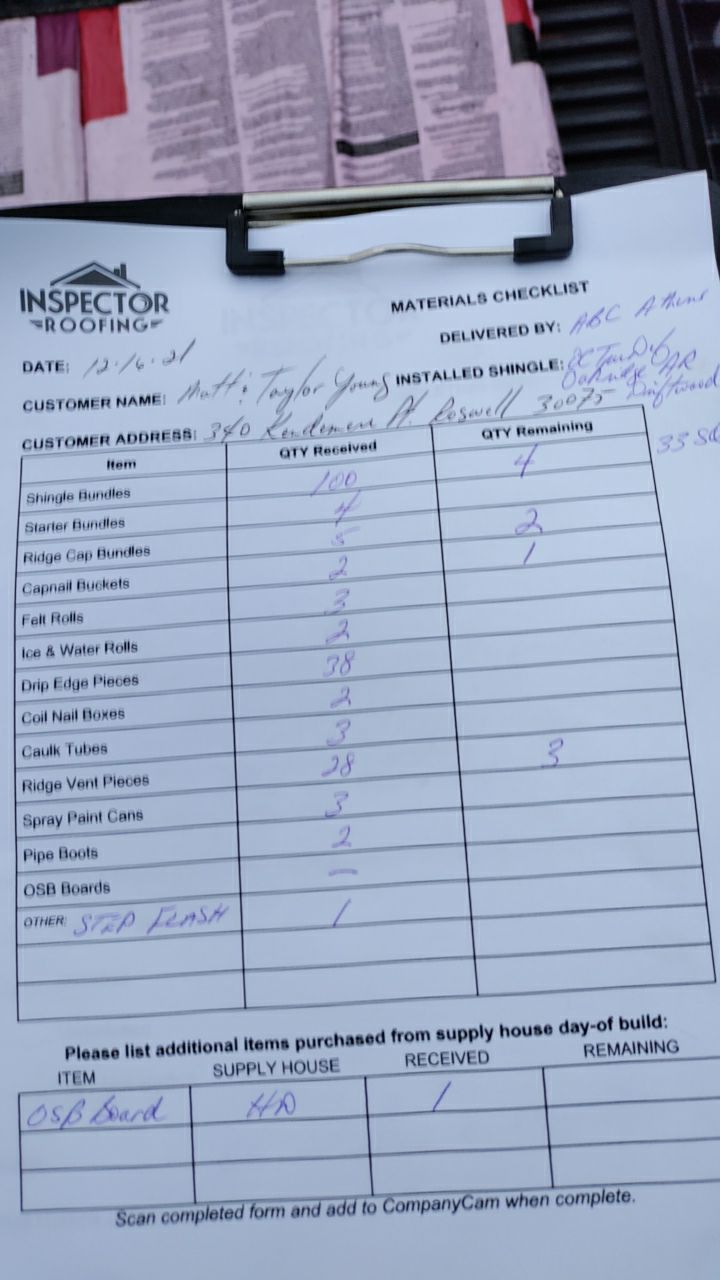 INSPECTOR
ROOFING
MATERIALS CHECKLIST
DELIVERED BY: ABC Athens
DATE: 12·16·21
INSTALLED SHINGLE: Oakridge AR
Driftwood
CUSTOMER NAME: Matt & Taylor Young
CUSTOMER ADDRESS: 340 Roswell 30075
33 SQ
Item QTY Received QTY Remaining
Shingle Bundles 100 4
Starter Bundles 4
Ridge Cap Bundles 5 2
Capnail Buckets 2 1
Felt Rolls 3
Ice & Water Rolls 2
Drip Edge Pieces 38
Coil Nail Boxes 2
Caulk Tubes 3
Ridge Vent Pieces 28 3
Spray Paint Cans 3
Pipe Boots 2
OSB Boards —
OTHER: STEP FLASH 1
Please list additional items purchased from supply house day-of build:
ITEM SUPPLY HOUSE RECEIVED REMAINING
OSB Board HD 1
Scan completed form and add to CompanyCam when complete.